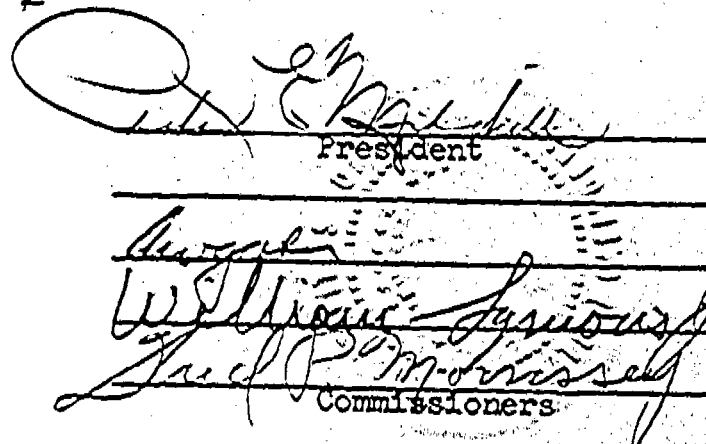 Peter E. Mitchell
President
William Symons Jr
Fred P Morrissey
Commissioners